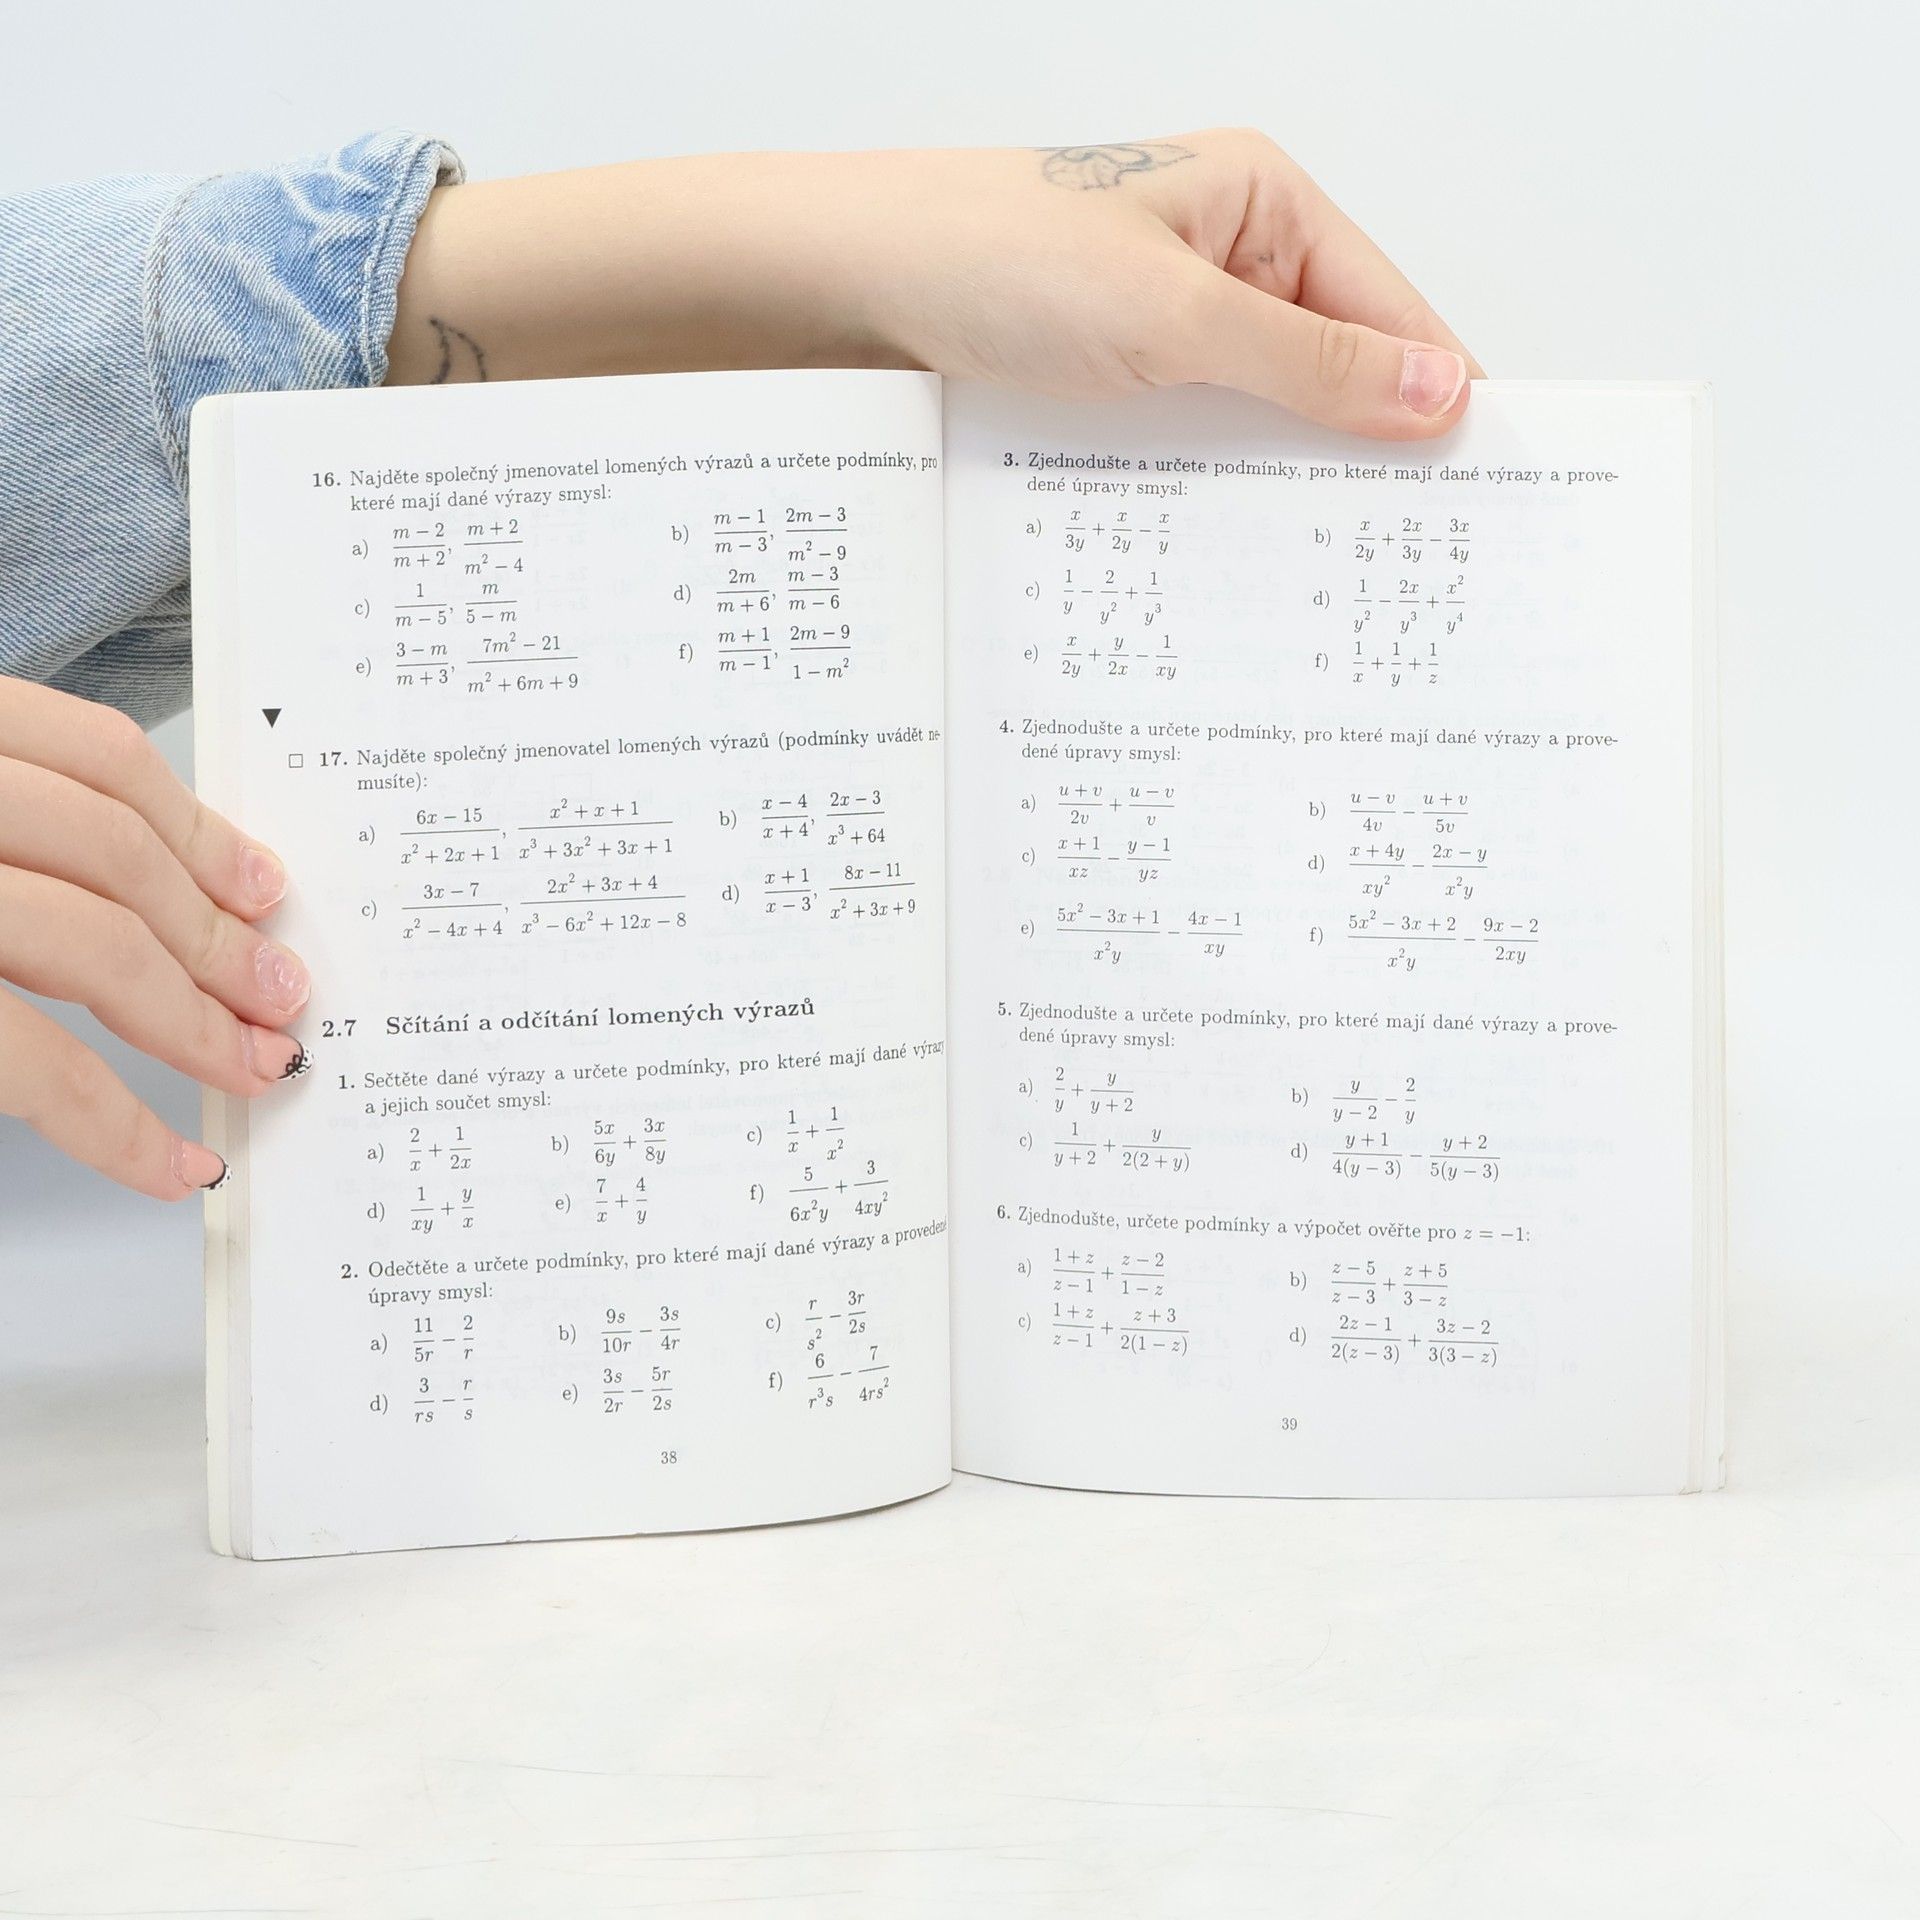 16. Najděte společný jmenovatel lomených výrazů a určete podmínky, pro
které mají dané výrazy smysl:
a) (m − 2)/(m + 2), (m + 2)/(m² − 4) b) (m − 1)/(m − 3), (2m − 3)/(m² − 9)
c) 1/(m − 5), m/(5 − m) d) 2m/(m + 6), (m − 3)/(m − 6)
e) (3 − m)/(m + 3), (7m² − 21)/(m² + 6m + 9) f) (m + 1)/(m − 1), (2m − 9)/(1 − m²)
▼
□ 17. Najděte společný jmenovatel lomených výrazů (podmínky uvádět ne-
musíte):
a) (6x − 15)/(x² + 2x + 1), (x² + x + 1)/(x³ + 3x² + 3x + 1) b) (x − 4)/(x + 4), (2x − 3)/(x³ + 64)
c) (3x − 7)/(x² − 4x + 4), (2x² + 3x + 4)/(x³ − 6x² + 12x − 8) d) (x + 1)/(x − 3), (8x − 11)/(x² + 3x + 9)
2.7 Sčítání a odčítání lomených výrazů
1. Sečtěte dané výrazy a určete podmínky, pro které mají dané výrazy
a jejich součet smysl:
a) 2/x + 1/2x b) 5x/6y + 3x/8y c) 1/x + 1/x²
d) 1/xy + y/x e) 7/x + 4/y f) 5/6x²y + 3/4xy²
2. Odečtěte a určete podmínky, pro které mají dané výrazy a provedené
úpravy smysl:
a) 11/5r − 2/r b) 9s/10r − 3s/4r c) r/s² − 3r/2s
d) 3/rs − r/s e) 3s/2r − 5r/2s f) 6/r³s − 7/4rs²
38
3. Zjednodušte a určete podmínky, pro které mají dané výrazy a prove-
dené úpravy smysl:
a) x/3y + x/2y − x/y b) x/2y + 2x/3y − 3x/4y
c) 1/y − 2/y² + 1/y³ d) 1/y² − 2x/y³ + x²/y⁴
e) x/2y + y/2x − 1/xy f) 1/x + 1/y + 1/z
4. Zjednodušte a určete podmínky, pro které mají dané výrazy a prove-
dené úpravy smysl:
a) (u + v)/2v + (u − v)/v b) (u − v)/4v − (u + v)/5v
c) (x + 1)/xz − (y − 1)/yz d) (x + 4y)/xy² − (2x − y)/x²y
e) (5x² − 3x + 1)/x²y − (4x − 1)/xy f) (5x² − 3x + 2)/x²y − (9x − 2)/2xy
5. Zjednodušte a určete podmínky, pro které mají dané výrazy a prove-
dené úpravy smysl:
a) 2/y + y/(y + 2) b) y/(y − 2) − 2/y
c) 1/(y + 2) + y/2(2 + y) d) (y + 1)/4(y − 3) − (y + 2)/5(y − 3)
6. Zjednodušte, určete podmínky a výpočet ověřte pro z = −1:
a) (1 + z)/(z − 1) + (z − 2)/(1 − z) b) (z − 5)/(z − 3) + (z + 5)/(3 − z)
c) (1 + z)/(z − 1) + (z + 3)/2(1 − z) d) (2z − 1)/2(z − 3) + (3z − 2)/3(3 − z)
39